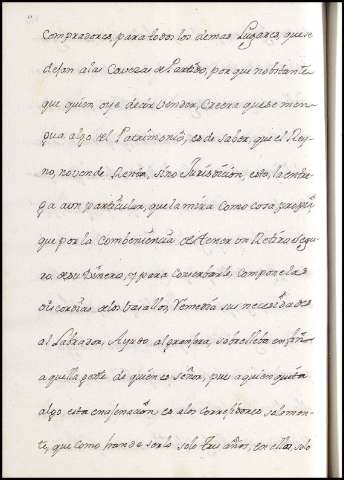 Compradores, para todos los demas Lugares, que se
dejan a las Cavezas de Partido, por que no obstante
que quien oye decir vender, Creera que se men-
gua algo del Patrimonio, es de saber, que el Rey-
no, no vende Renta, sino Jurisdicion, esto, la entre-
ga a un particular, que la mira como cosa propia,
que por la combeniencia de tener un Retiro segu-
ro, de su Dinero, y para conserbarle, compone las
discordias, de los vasallos, Remedia sus necesidades
al Labrador, Ayuda al
a quella parte de quien es señor, pues a quien quita
algo esta enajenacion, es a los corregidores solamen-
te, que como han de serlo solo tres años, en ellos, solo